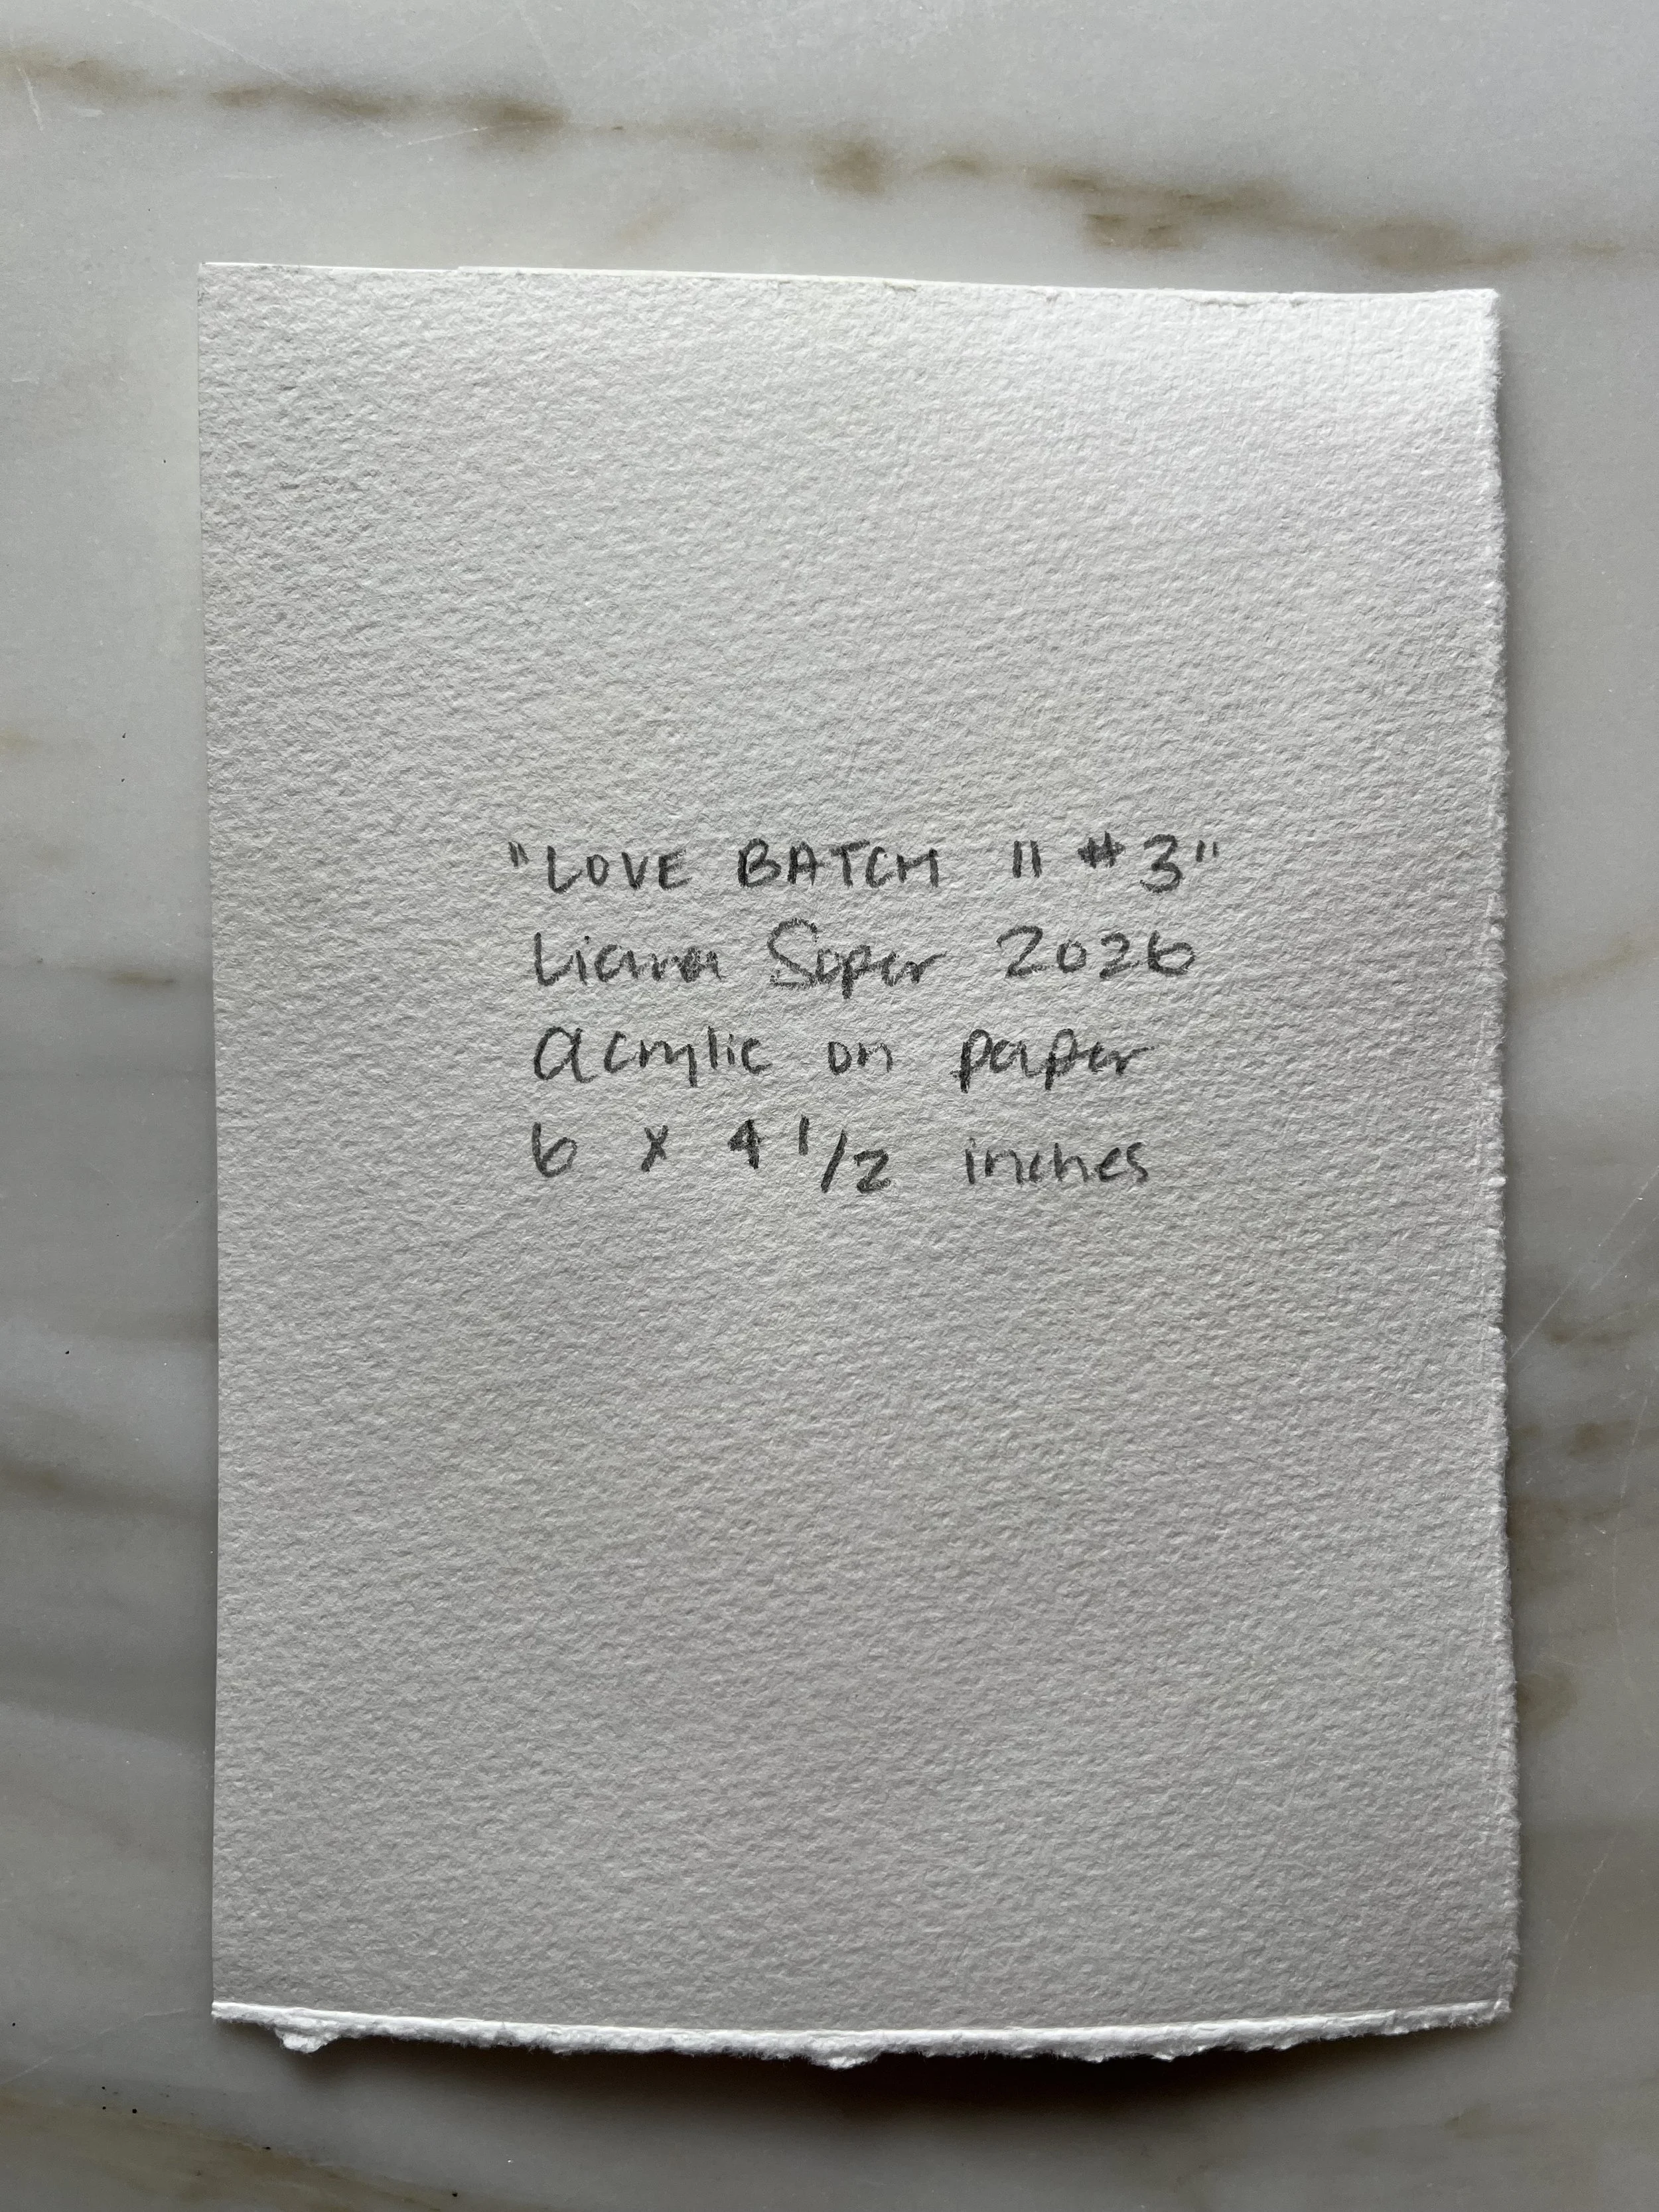 "LOVE BATCH 11 #3"
Liana Soper 2026
acrylic on paper
6 x 4 1/2 inches